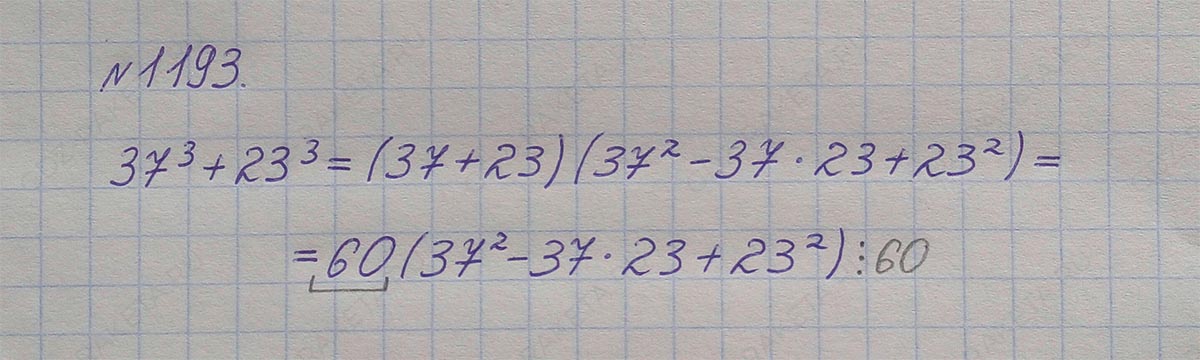 №1193.
37³+23³=(37+23)(37²-37·23+23²)=
=60(37²-37·23+23²)⋮60